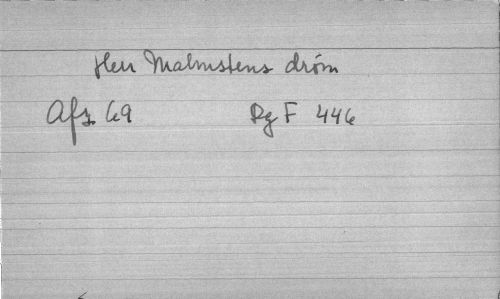 Herr Malmstens dröm
Afz. 69
Dg F 446